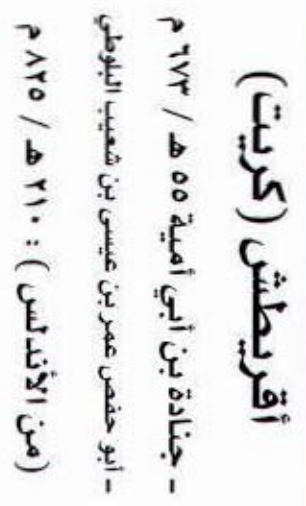 أقريطش (كريت)
- جنادة بن أبي أمية ٥٥ هـ / ٦٧٣ م
- أبو حفص عمر بن عيسى بن شعيب البلوطي
(من الأندلس) : ٢١٠ هـ / ٨٢٥ م